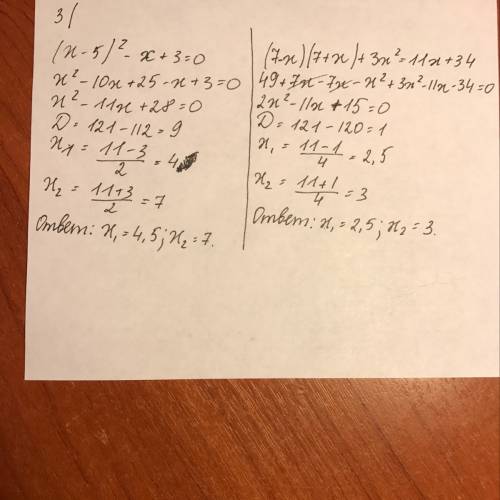 3/
(x-5)² - x + 3 = 0
x² - 10x + 25 - x + 3 = 0
x² - 11x + 28 = 0
D = 121 - 112 = 9
x₁ = (11-3)/2 = 4
x₂ = (11+3)/2 = 7
Ответ: x₁ = 4,5; x₂ = 7.
(7-x)(7+x) + 3x² = 11x + 34
49 + 7x - 7x - x² + 3x² - 11x - 34 = 0
2x² - 11x + 15 = 0
D = 121 - 120 = 1
x₁ = (11-1)/4 = 2,5
x₂ = (11+1)/4 = 3
Ответ: x₁ = 2,5; x₂ = 3.